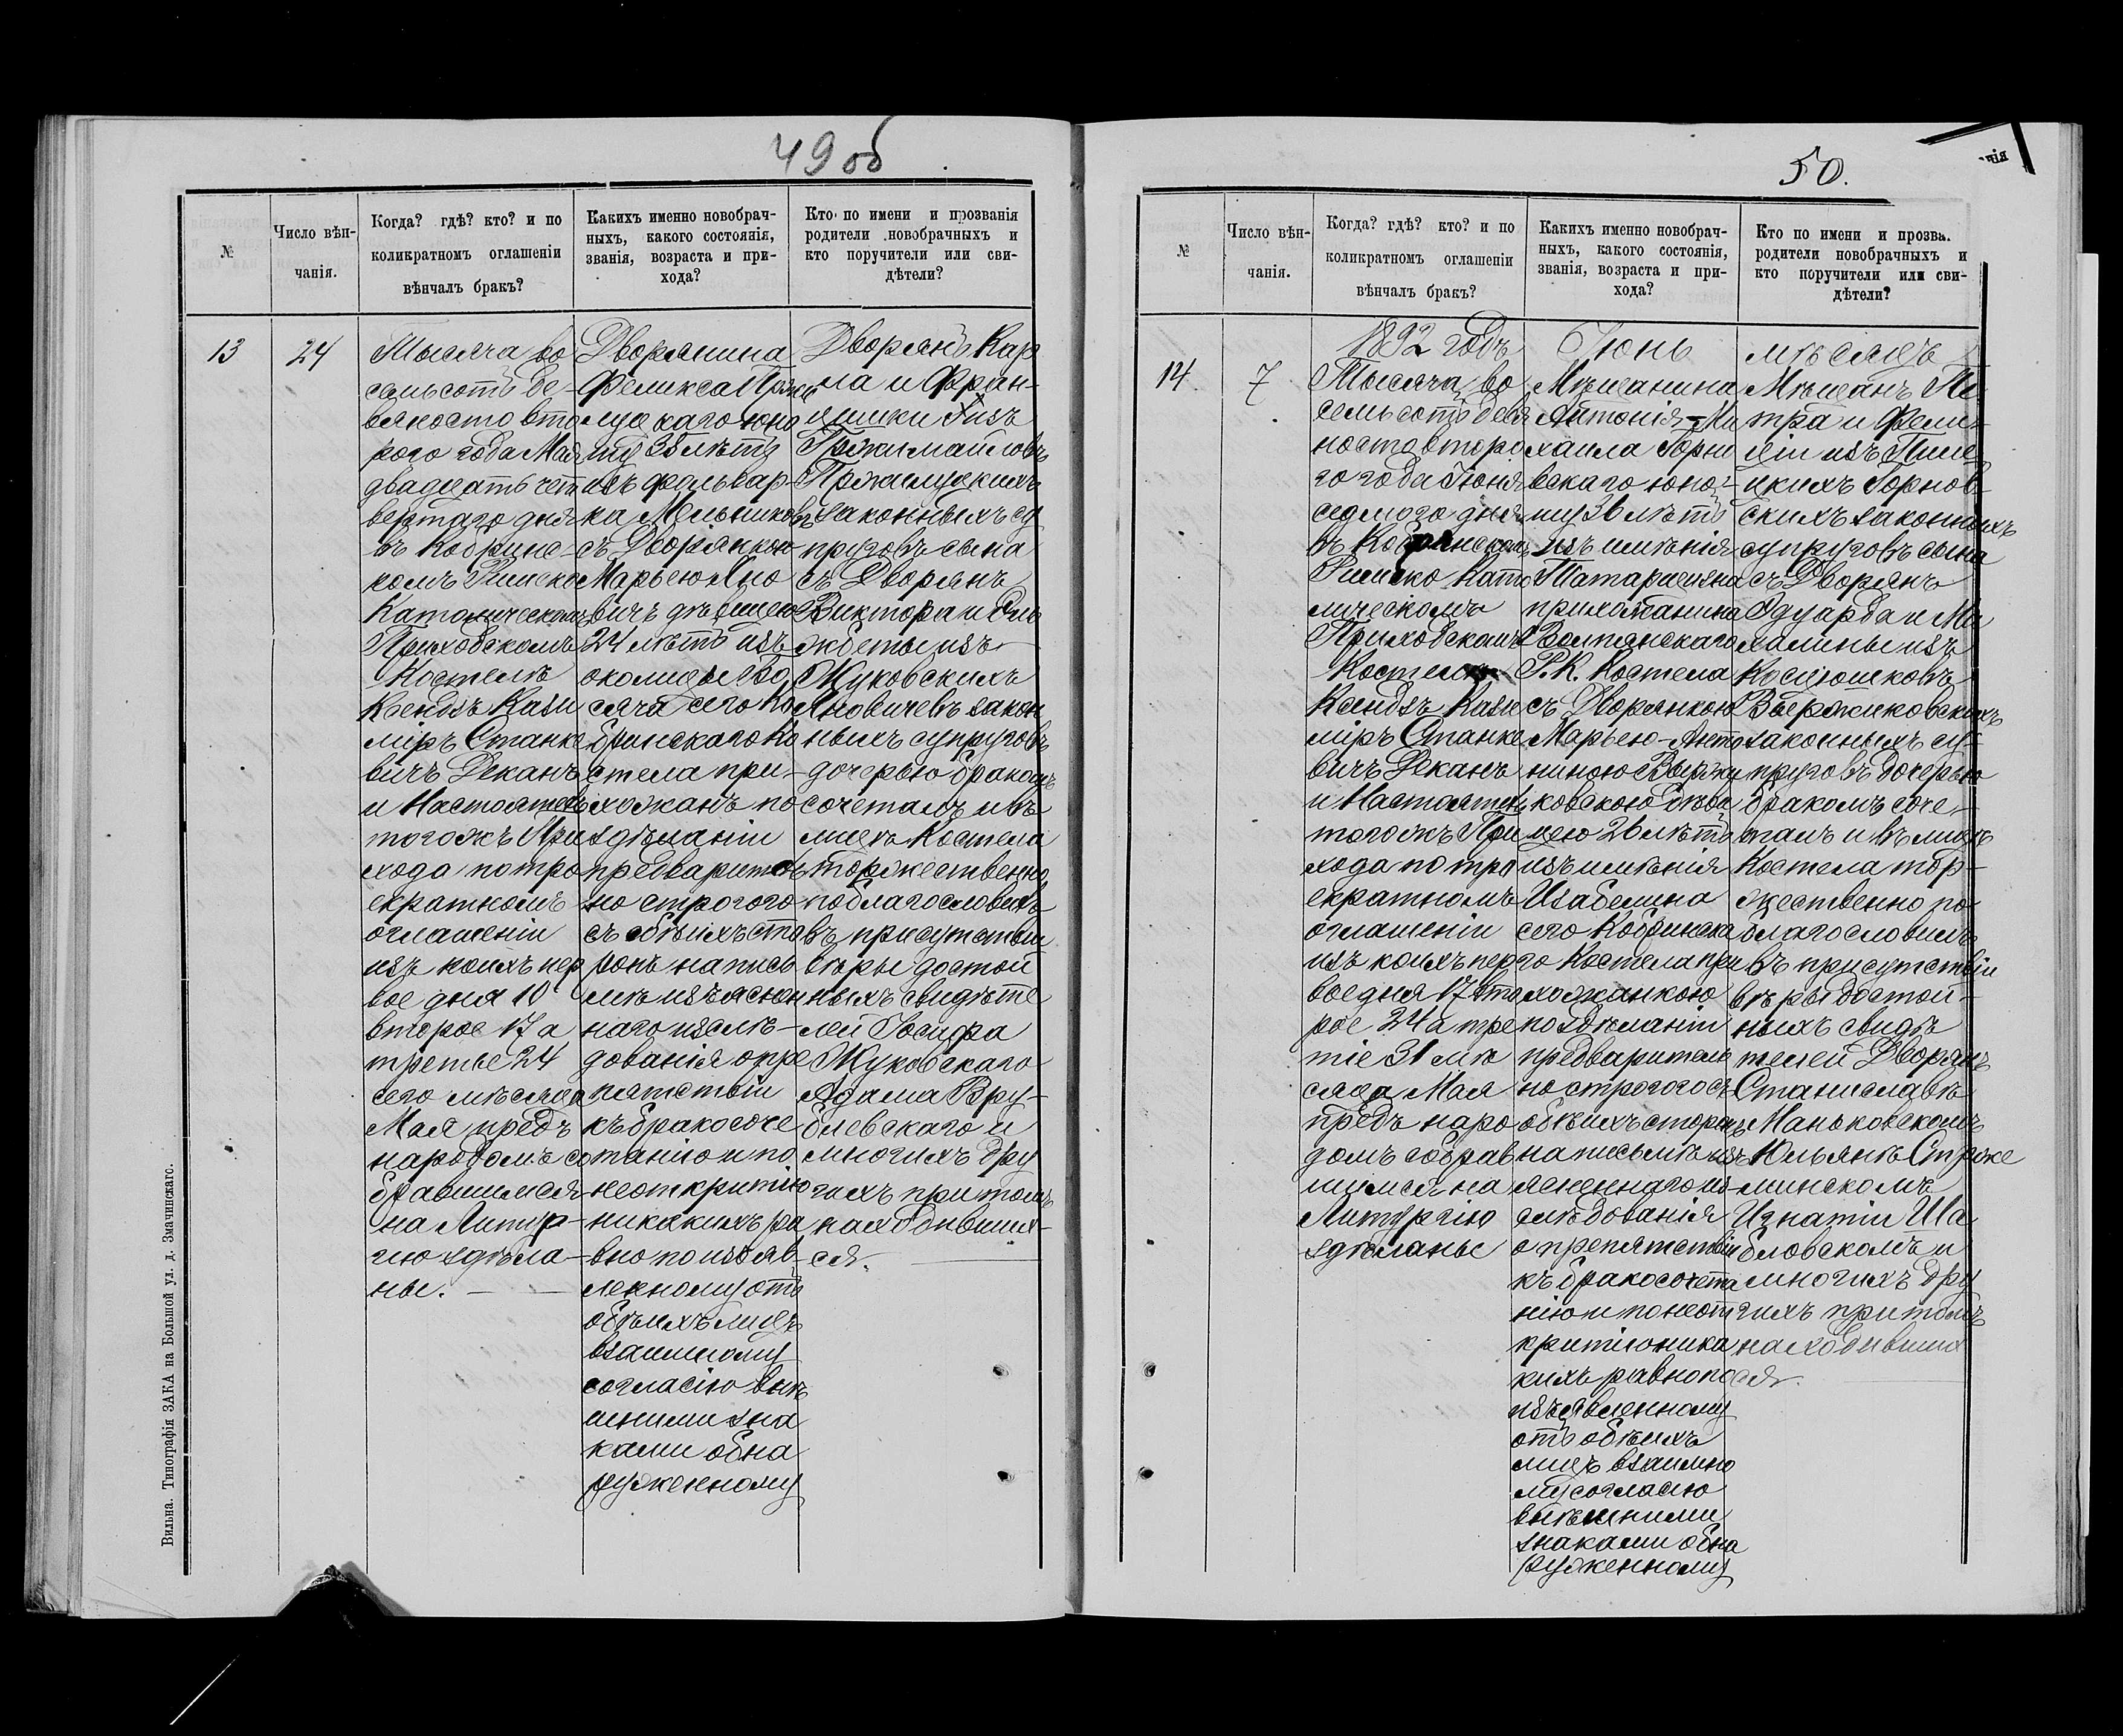 49 об
№
Число вѣн-
чанія.
Когда? гдѣ? кто? и по
коликратномъ оглашеніи
вѣнчалъ бракъ?
Какихъ именно новобрач-
ныхъ, какого состоянія,
званія, возраста и при-
хода?
Кто по имени и прозванія
родители новобрачныхъ и
кто поручители или сви-
дѣтели?
13
24
Тысяча во
семьсотъ де-
вяносто вто
рого года Мая
двадцать чет
вертаго дня
въ Кобринс-
комъ Римско
Католическомъ
Приходскомъ
Костелѣ
Ксендзъ Кази
міръ Станке
вичъ Деканъ
и Настоятель
тогожъ При
хода по тро
екратномъ
оглашеніи
изъ коихъ пер
вое дня 10
второе 17 а
третье 24
сего мѣсяца
Мая предъ
народомъ со
бравшимся
на Литур-
гію сдѣла-
ны.
Дворянина
Феликса Пржи
луцкаго юно
шу 38 лѣтъ
изъ фольвар-
ка Мельники
съ Дворянкою
Марьею Яно
вичъ дѣвицею
24 лѣтъ изъ
околицы
сяча сего Ко
бринскаго Ко
стела при-
хожанъ по
здѣланіи
предваритель
но строгого
съ обѣихъ сто
ронъ на пись
мѣ изъяснен
наго изслѣ-
дованія о пре
пятствіи
къ бракосоче
танію и по
неоткритію
никакихъ ра
вно по изъяв-
ленному отъ
обѣихъ лицъ
взаимному
согласію внѣ
шними зна
ками обна
руженному
Дворянъ Кар
ла и Фран-
цишки изъ
Пржилуцкихъ
законныхъ су
пруговъ сына
съ Дворянъ
Виктора и Ели
жбеты изъ
Жуковскихъ
Яновичевъ закон
ныхъ супруговъ
дочерью бракомъ
сочеталъ и въ
лицѣ Костела
торжественно
поблагословилъ
въ присутствіи
вѣры достой
ныхъ свидѣте
лей Іосифа
Жуковскаго
Адама Вру-
блевскаго и
многихъ дру
гихъ при томъ
находивших-
ся.
Вильна. Типографія ЗАКА на Большой ул. д. Змачинскаго.
50.
чія
№
Число вѣн-
чанія.
Когда? гдѣ? кто? и по
коликратномъ оглашеніи
вѣнчалъ бракъ?
Какихъ именно новобрач-
ныхъ, какого состоянія,
званія, возраста и при-
хода?
Кто по имени и прозва.
родители новобрачныхъ и
кто поручители или сви-
дѣтели?
1892 годъ Іюнь мѣсяцъ
14.
7
Тысяча во
семьсотъ девя
носто второ
го года Іюня
седмого дня
въ Кобринскомъ
Римско Като
лическомъ
Приходскомъ
Костелѣ
Ксендзъ Кази
міръ Станке
вичъ Деканъ
и Настоятель
тогожъ При
хода по тро
екратномъ
оглашеніи
изъ коихъ пер
вое дня 17 вто
рое 24 а тре
тіе 31 мѣ
сяца Мая
предъ наро
домъ собрав
шимся на
Литургію
здѣланы
Мѣщанина
Антонія-Ми
хаила Горно
вскаго юно-
шу 36 лѣтъ
изъ имѣнія
прихожанина
Р.К. Костела
съ Дворянкою
Марьею-Анто
ниною Вержи
ковскою дѣви
цею 26 лѣтъ
изъ имѣнія
Изабелина
сего Кобринска
го Костела при
хожанкою
по здѣланіи
предваритель
но строгого съ
обѣихъ сторонъ
на письмѣ изъ
ясненнаго из-
слѣдованія
о препятствіи
къ бракосочета
нію и по неот
критію ника
кихъ равно по
изъявленному
отъ обѣихъ
лицъ взаимно
му согласію
внѣшними
знаками обна
руженному
Мѣщанъ Пе
тра и Фели-
ціи изъ
Горнов-
скихъ законныхъ
супруговъ сына
съ Дворянъ
Эдуарда и Ми
халины изъ
Косцюшковъ
Вержиковскихъ
законныхъ су-
пруговъ дочерью
бракомъ соче-
талъ и въ лицѣ
Костела тор-
жественно по
благословилъ
въ присутствіи
вѣры достой-
ныхъ свидѣ
телей Дворянъ
Станиславѣ
Маньковскомъ
Юльянѣ Стрже
минскомъ
Игнатіи Ша
бловскомъ и
многихъ дру
гихъ при томъ
находивших
ся.